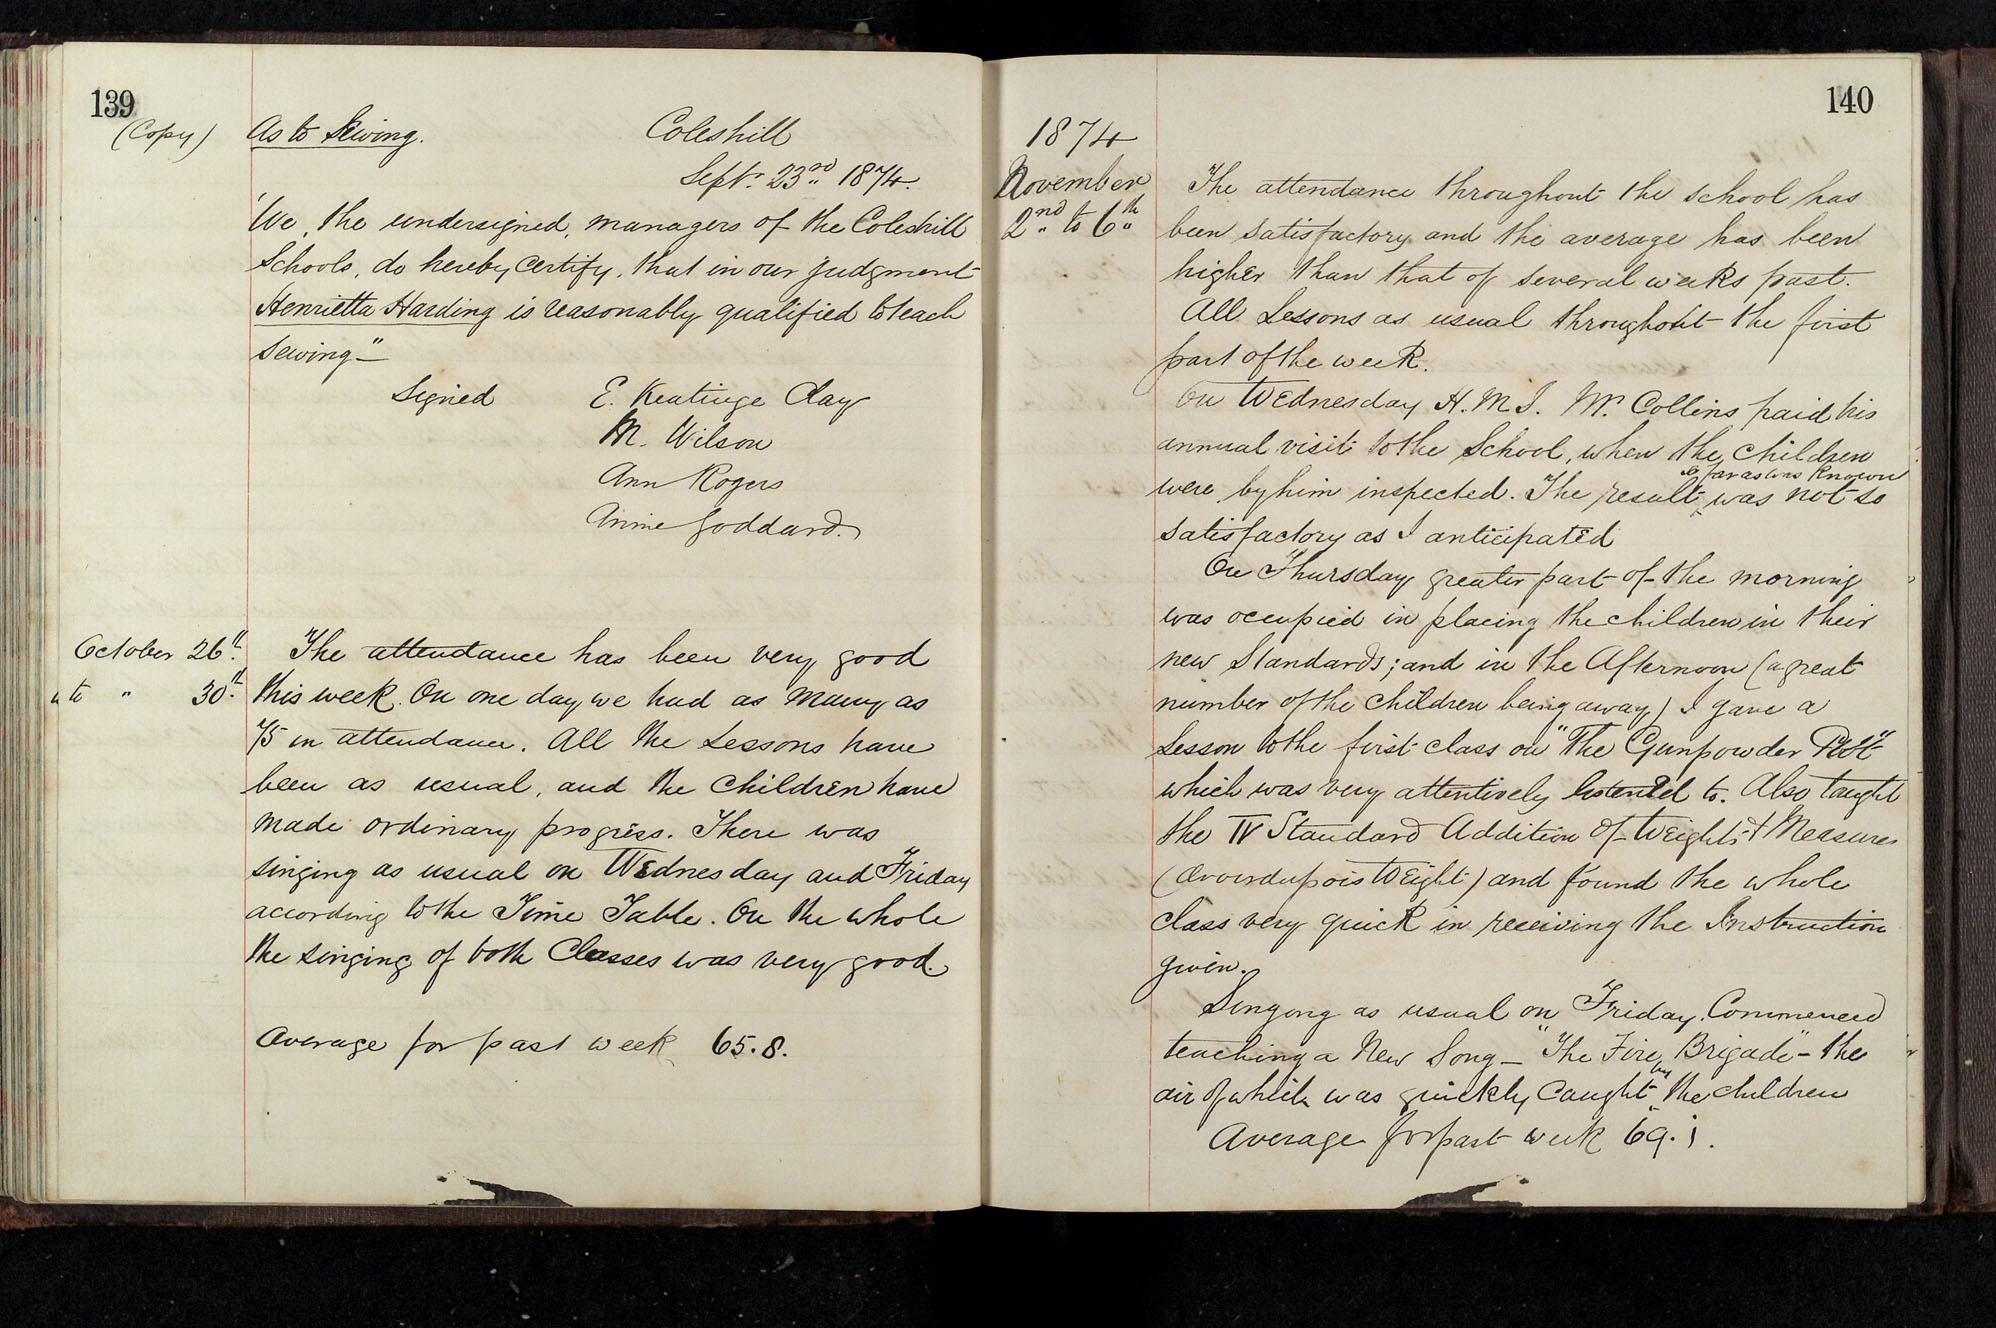 139
(Copy) As to Sewing. Coleshill
Sept. 23rd 1874.
"We, the undersigned, managers of the Coleshill
Schools, do hereby certify, that in our judgment
Henrietta Harding is reasonably qualified to teach
sewing—"
Signed E. Keatinge Clay
M. Wilson
Ann Rogers
Annie Goddard.
October 26th. The attendance has been very good
" to " 30th. this week. On one day we had as many as
75 in attendance. All the Lessons have
been as usual, and the Children have
made ordinary progress. There was
singing as usual on Wednesday and Friday
according to the Time Table. On the whole
the singing of both Classes was very good.
Average for past week 65.8.
140
1874
November The attendance throughout the school has
2nd to 6th been satisfactory and the average has been
higher than that of several weeks past.
All Lessons as usual throughout the first
part of the week.
On Wednesday H.M.I. Mr. Collins paid his
annual visit to the School, when the children
were by him inspected. The result so far as was known was not so
satisfactory as I anticipated
On Thursday greater part of the morning
was occupied in placing the children in their
new Standards; and in the Afternoon (a great
number of the children being away) I gave a
Lesson to the first class on "The Gunpowder Plot"
which was very attentively listened to. Also taught
the IV Standard Addition of Weights & Measures
(Avoirdupois Weight) and found the whole
class very quick in receiving the Instruction
given.
Singing as usual on Friday. Commenced
teaching a New Song — "The Fire Brigade" - the
air of which was quickly caught by the children
Average for past week 69.1.